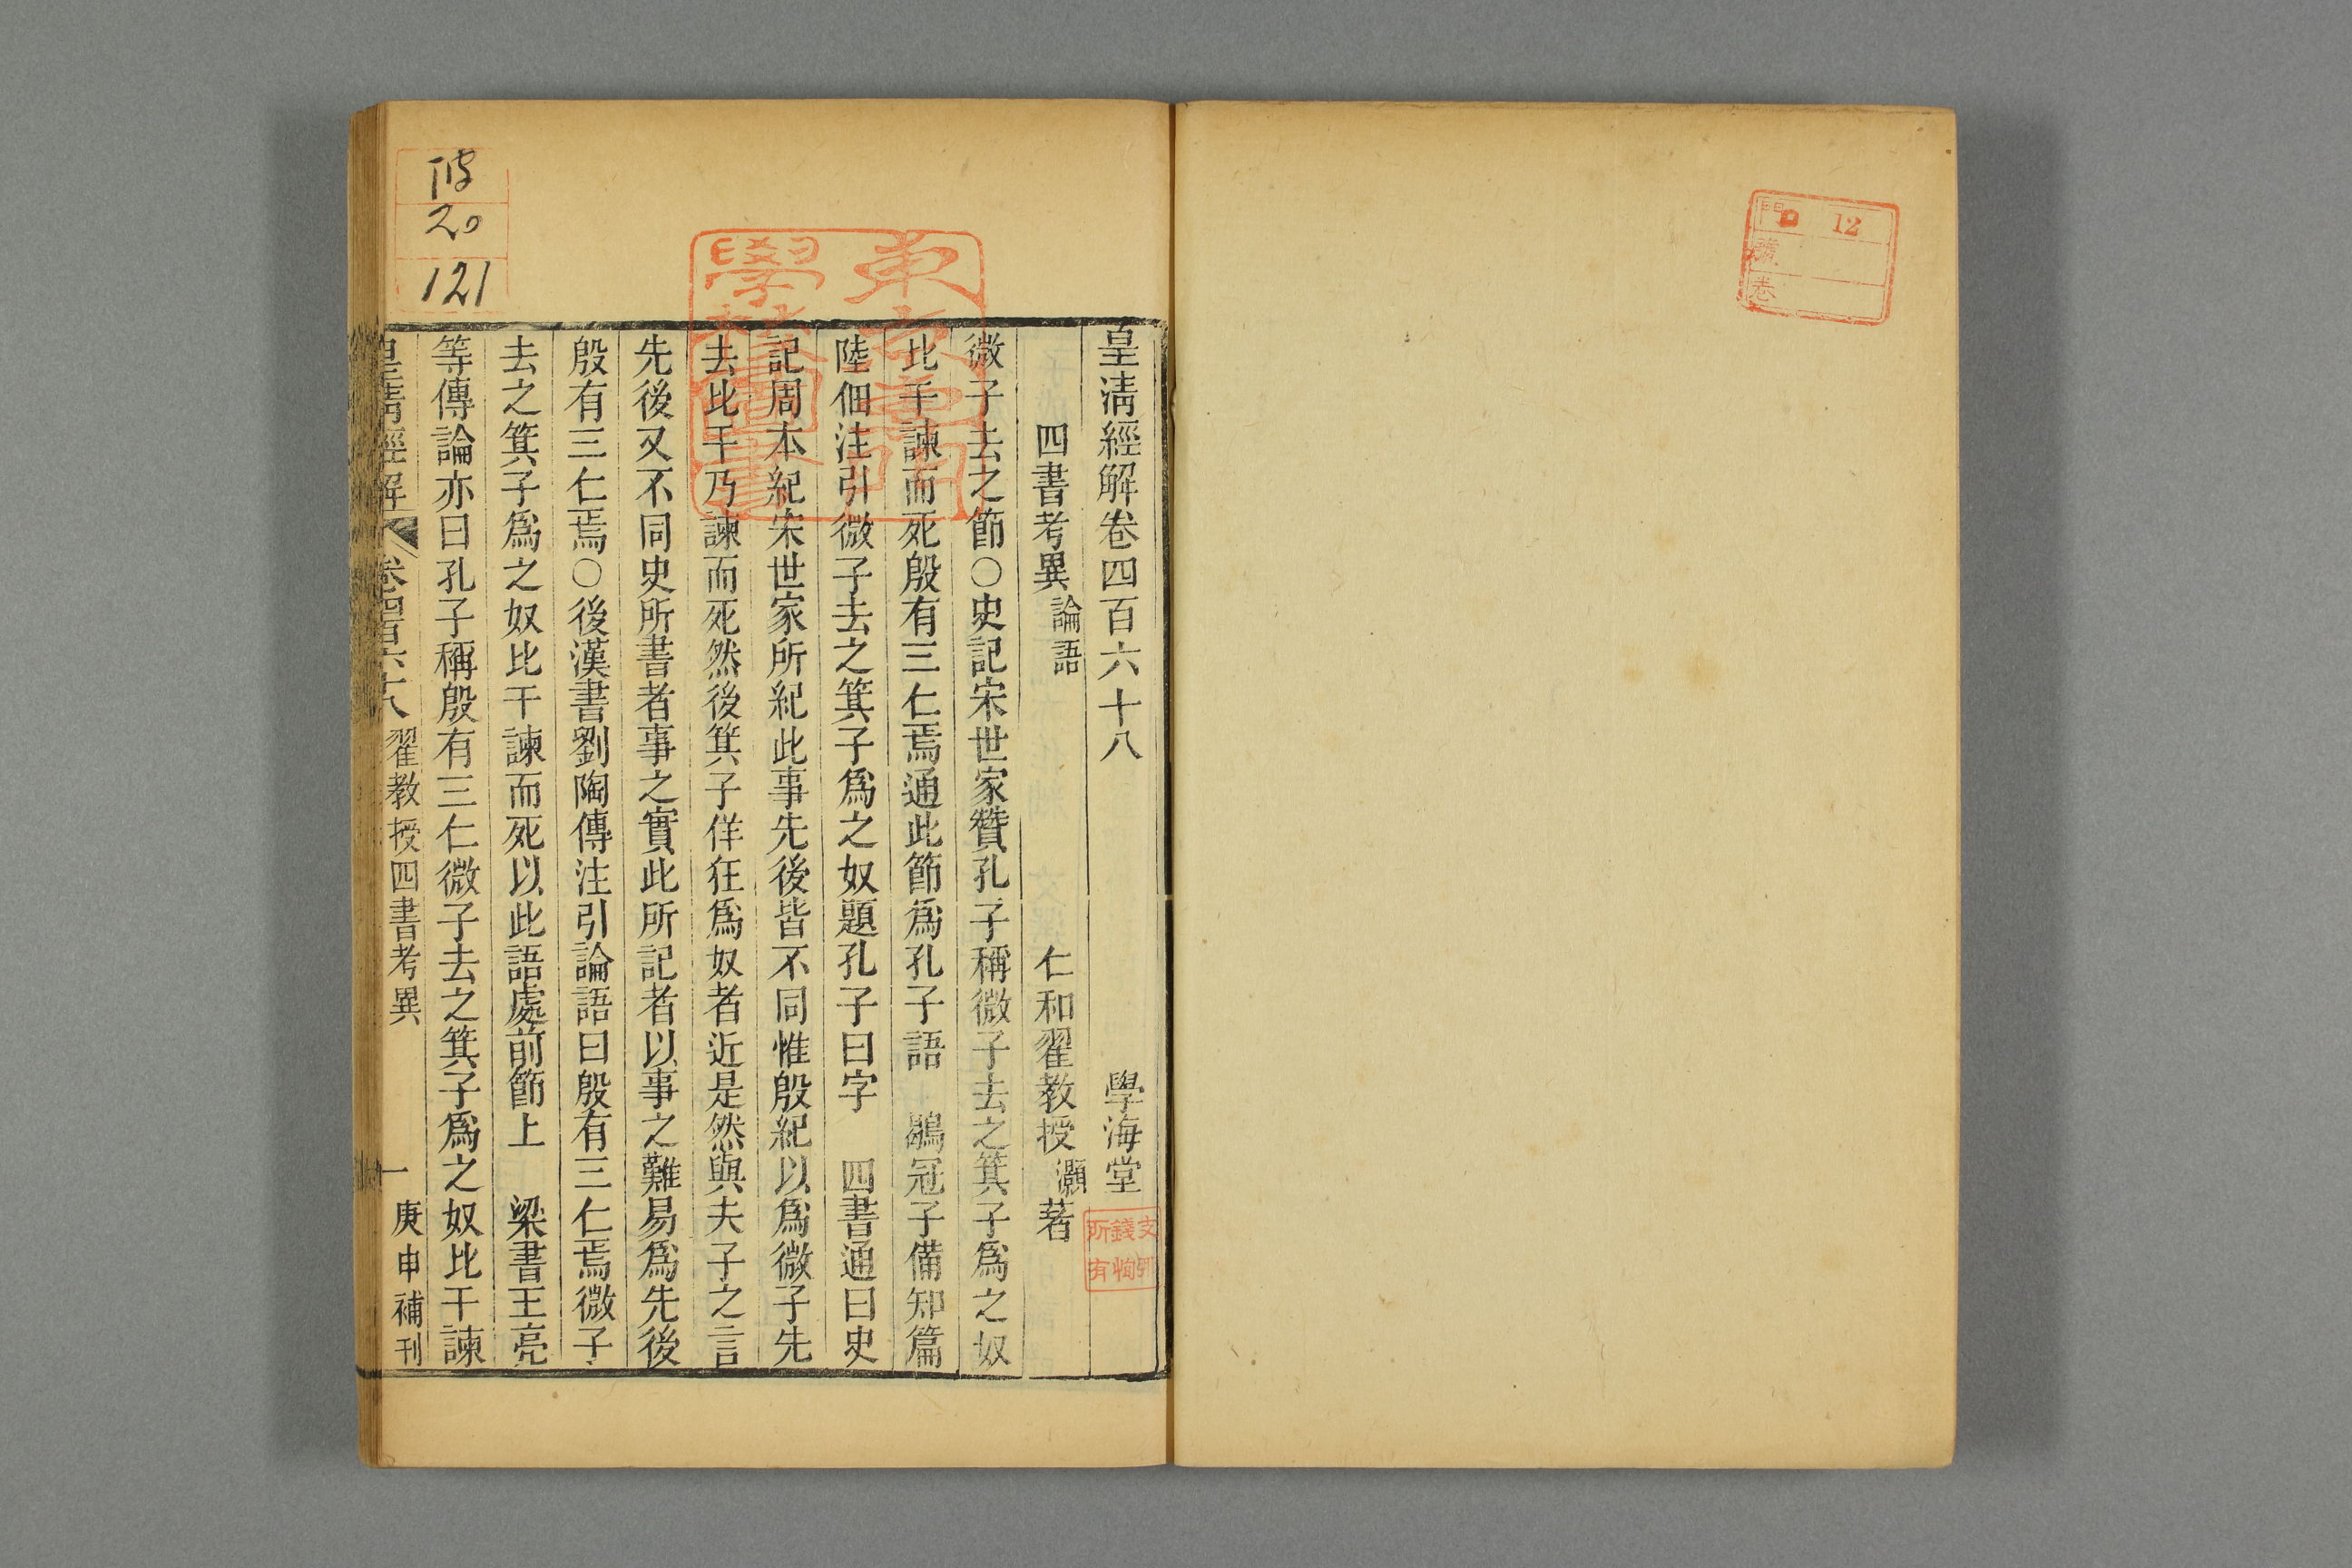 12
門
號
卷
皇清經解卷四百六十八 學海堂
四書考異 論語 仁和翟教授灝著
微子去之節○史記宋世家贊孔子稱微子去之箕子爲之奴
比干諫而死殷有三仁焉通此節爲孔子語 鶡冠子備知篇
陸佃注引微子去之箕子爲之奴題孔子曰字 四書通曰史
記周本紀宋世家所紀此事先後皆不同惟殷紀以爲微子先
去比干乃諫而死然後箕子佯狂爲奴者近是然與夫子之言
先後又不同史所書者事之實此所記者以事之難易爲先後
殷有三仁焉○後漢書劉陶傳注引論語曰殷有三仁焉微子
去之箕子爲之奴比干諫而死以此語處前節上 梁書王亮
等傳論亦曰孔子稱殷有三仁微子去之箕子爲之奴比干諫
皇清經解 卷四百六十八 翟教授四書考異 一 庚申補刊
20
121